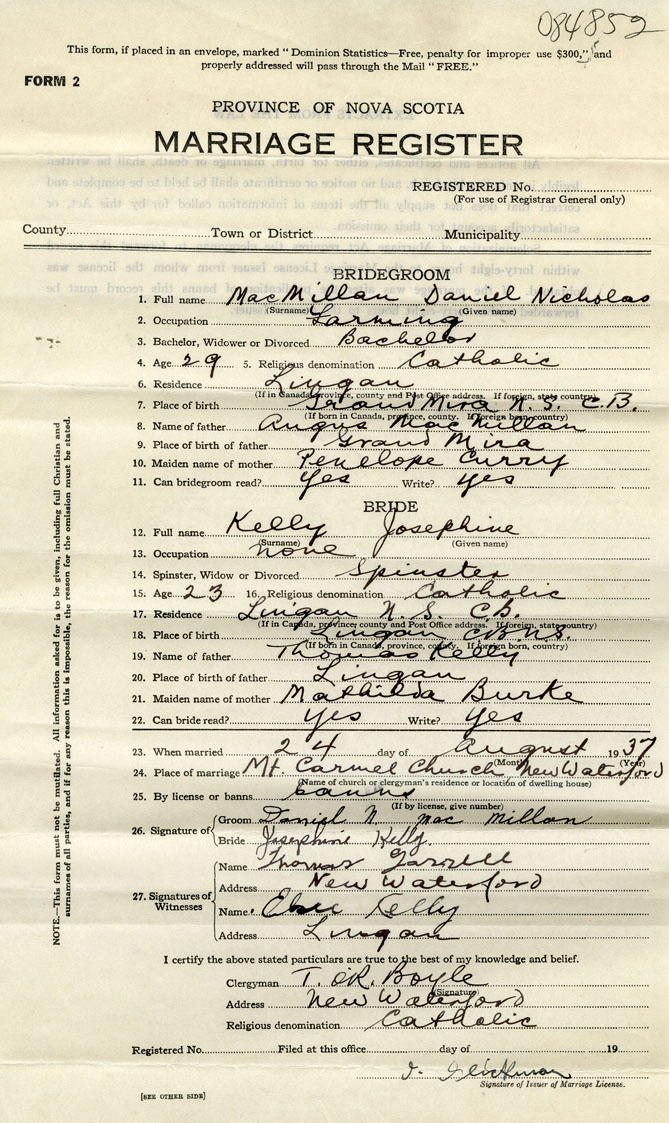 084852
This form, if placed in an envelope, marked "Dominion Statistics—Free, penalty for improper use $300," and
properly addressed will pass through the Mail "FREE."
FORM 2
PROVINCE OF NOVA SCOTIA
MARRIAGE REGISTER
REGISTERED No.
(For use of Registrar General only)
County Town or District Municipality
BRIDEGROOM
1. Full name MacMillan Daniel Nicholas
(Surname) (Given name)
2. Occupation Farming
3. Bachelor, Widower or Divorced Bachelor
4. Age 29 5. Religious denomination Catholic
6. Residence Lingan
(If in Canada, province, county and Post Office address. If foreign, state country)
7. Place of birth Grand Mira N.S. C.B.
(If born in Canada, province, county. If foreign born, country)
8. Name of father Angus MacMillan
9. Place of birth of father Grand Mira
10. Maiden name of mother Penelope Curry
11. Can bridegroom read? Yes Write? yes
BRIDE
12. Full name Kelly Josephine
(Surname) (Given name)
13. Occupation none
14. Spinster, Widow or Divorced Spinster
15. Age 23 16. Religious denomination Catholic
17. Residence Lingan N.S. C.B.
(If in Canada, province, county and Post Office address. If foreign, state country)
18. Place of birth Lingan C.B. N.S.
(If born in Canada, province, county. If foreign born, country)
19. Name of father Thomas Kelly
20. Place of birth of father Lingan
21. Maiden name of mother Mathilda Burke
22. Can bride read? yes Write? yes
23. When married 24 day of August 1937
(Month) (Year)
24. Place of marriage Mt. Carmel Church New Waterford
(Name of church or clergyman's residence or location of dwelling house)
25. By license or banns banns
(If by license, give number)
26. Signature of Groom Daniel N. MacMillan
Bride Josephine Kelly.
27. Signatures of Witnesses Name Thomas
Address New Waterford
Name Kelly
Address Lingan
I certify the above stated particulars are true to the best of my knowledge and belief.
Clergyman T. Boyle
(Signature)
Address New Waterford
Religious denomination Catholic
Registered No. Filed at this office day of 19
Signature of Issuer of Marriage License.
[SEE OTHER SIDE]
NOTE.—This form must not be mutilated. All information asked for is to be given, including full Christian and
surnames of all parties, and if for any reason this is impossible, the reason for the omission must be stated.